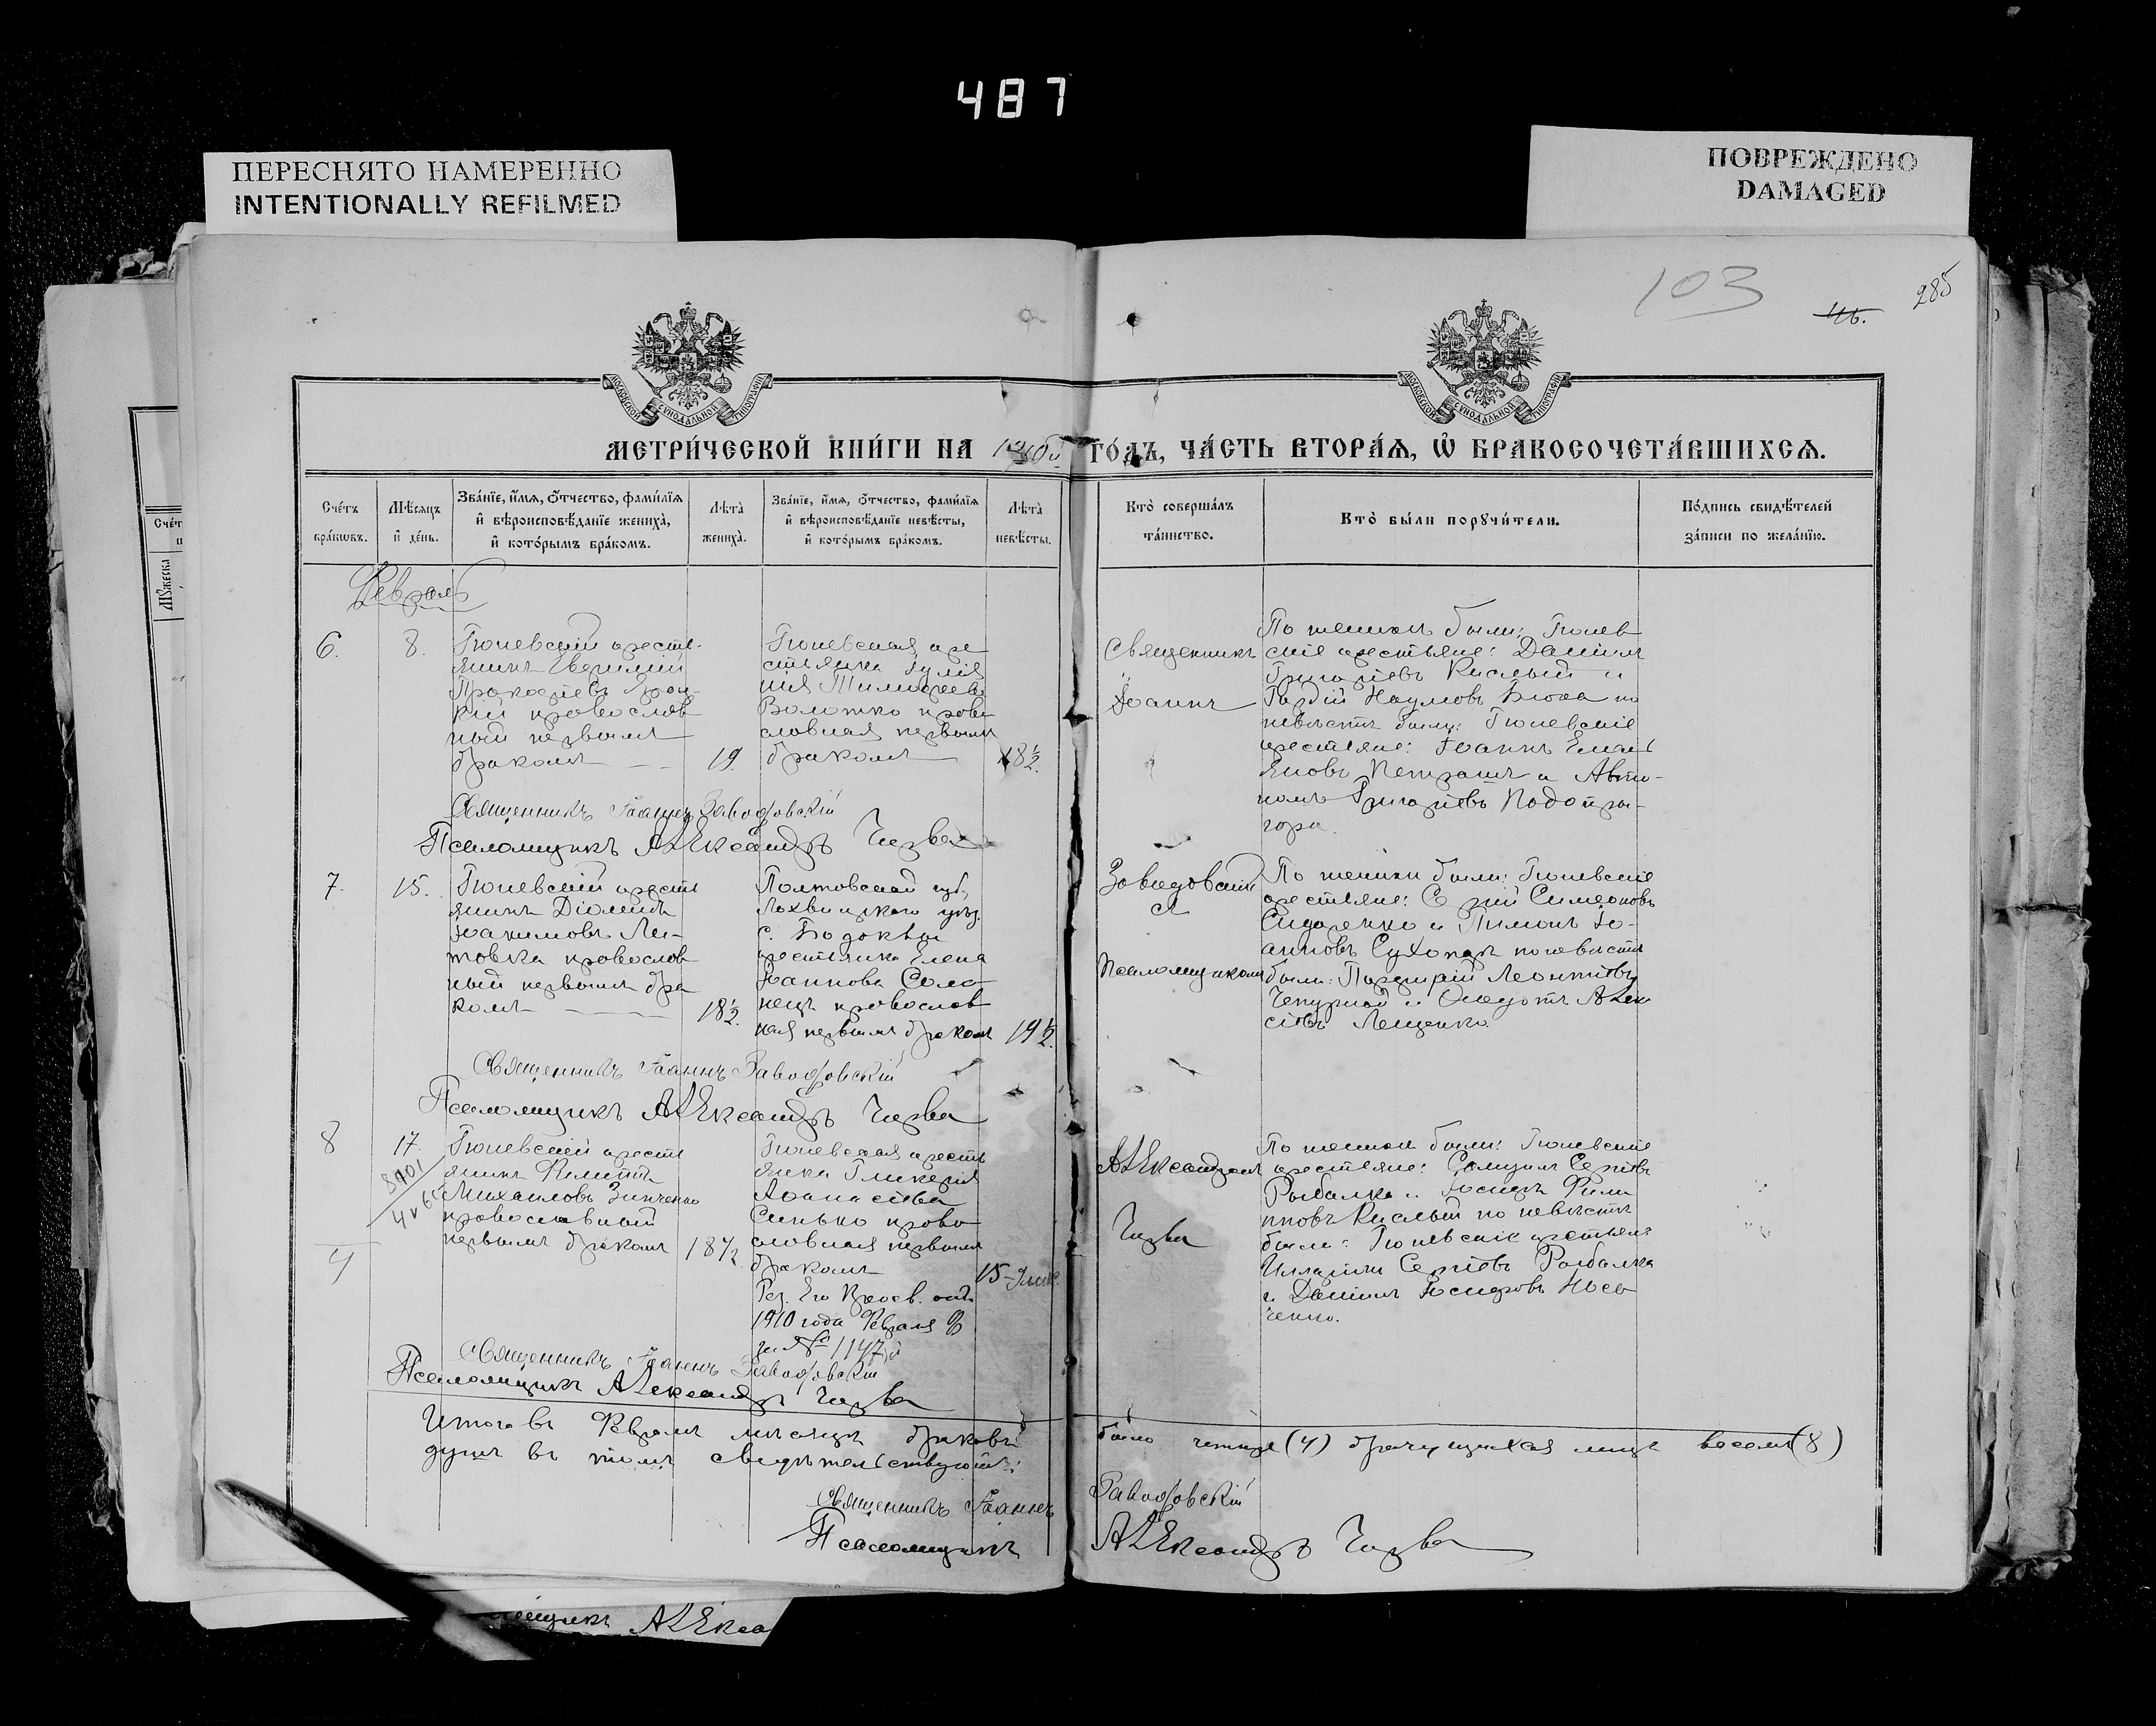 487
ПЕРЕСНЯТО НАМЕРЕННО
INTENTIONALLY REFILMED
ПОВРЕЖДЕНО
DAMAGED
103
285
МОСКОВСКОЙ СѴНОДАЛЬНОЙ ТИПОГРАФІИ
МОСКОВСКОЙ СѴНОДАЛЬНОЙ ТИПОГРАФІИ
МЕТРИ́ЧЕСКОЙ КНИ́ГИ НА 1910й ГО́ДЪ, ЧА́СТЬ ВТОРА́Ѧ, Ѡ҆ БРАКОСОЧЕТА́ВШИХСѦ.
Сче́тъ бра́кѡвъ.
Мѣ́сяцъ и҆ де́нь.
Зва́нїе, и҆́мѧ, ѻ҆́тчество, фами́лїѧ и҆ вѣроисповѣ́данїе жениха̀, и҆ кото́рымъ бра́комъ.
Лѣ́та жениха̀.
Зва́нїе, и҆́мѧ, ѻ҆́тчество, фами́лїѧ и҆ вѣроисповѣ́данїе невѣ́сты, и҆ кото́рымъ бра́комъ.
Лѣ́та невѣ́сты.
Кто̀ соверша́лъ та́инство.
Кто̀ бы́ли порꙋчи́тели.
По́дпись свидѣ́телей за́писи по жела́нїю.
Февраль
6.
8.
Гюневскій кресть-
янинъ
православ
ный первымъ
бракомъ
19.
Гюневская кре
стьянка Іулія
нія Тимофеева
Волошко право
славная первымъ
бракомъ
18½.
Священникъ
Іоаннъ
По женихѣ были: Гюнев
скіе крестьяне: Даніилъ
Григоріевъ Кислый и
Гордій Наумовъ Бюва по
невѣстѣ были: Гюневскіе
крестьяне: Іоаннъ Емель
яновъ Петрашъ и Авто-
номъ Григоріевъ Подопры-
гора.
Священникъ Іоаннъ Заводовскій
Псаломщикъ Александръ Чирва
7.
15.
Гюневскій кресть
янинъ Діомидъ
Іоакимовъ Ли-
товка православ
ный первымъ бра
комъ
18½.
Полтавской губ.
Лохвицкаго уѣз.
с. Бодаквы
крестьянка Елена
Іоаннова Соло
нецъ православ
ная первымъ бракомъ
19½.
Заводовскій
съ
Псаломщикомъ
По женихѣ были: Гюневскіе
крестьяне: Симеоновъ
Сидоренко и Пименъ Іо-
анновъ Сухонадъ по невѣстѣ
были: Порфирій Леонтіевъ
Чепурной и Ѳеодотъ Алек
сіевъ Лещенко.
Священникъ Іоаннъ Заводовскій
Псаломщикъ Александръ Чирва
8
17.
Гюневскій кресть
янинъ Филиппъ
Михаиловъ Зинченко
православный
первымъ бракомъ
18½
Гюневская кресть
янка Гликерія
Аѳанасіева
Синько право
славная первымъ
бракомъ
Рез. Его Преосв. отъ
1910 года Февраля
за № 1147й
Александромъ
Чирва
По женихѣ были: Гюневскіе
крестьяне: Самуилъ Сергіевъ
Рыбалка и Іосифъ Фили
пповъ Кислый по невѣстѣ
были: Гюневскіе крестьяне
Илларіонъ Сергіевъ Рыбалка
и Даніилъ Іосифовъ Носе
ченко.
4
Священникъ Іоаннъ Заводовскій
Псаломщикъ Александръ Чирва
Итого въ Февралѣ мѣсяцѣ браковъ было четыре (4) брачущихся лицъ восемь (8)
душъ въ томъ свидѣтельствуютъ:
Священникъ Іоаннъ Заводовскій
Псаломщикъ Александръ Чирва